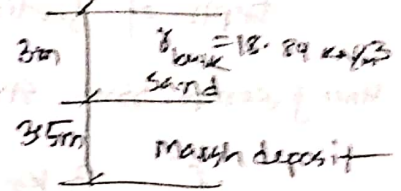 3m
γbulk = 18.84 kN/m3
sand
3.5m
marsh deposit